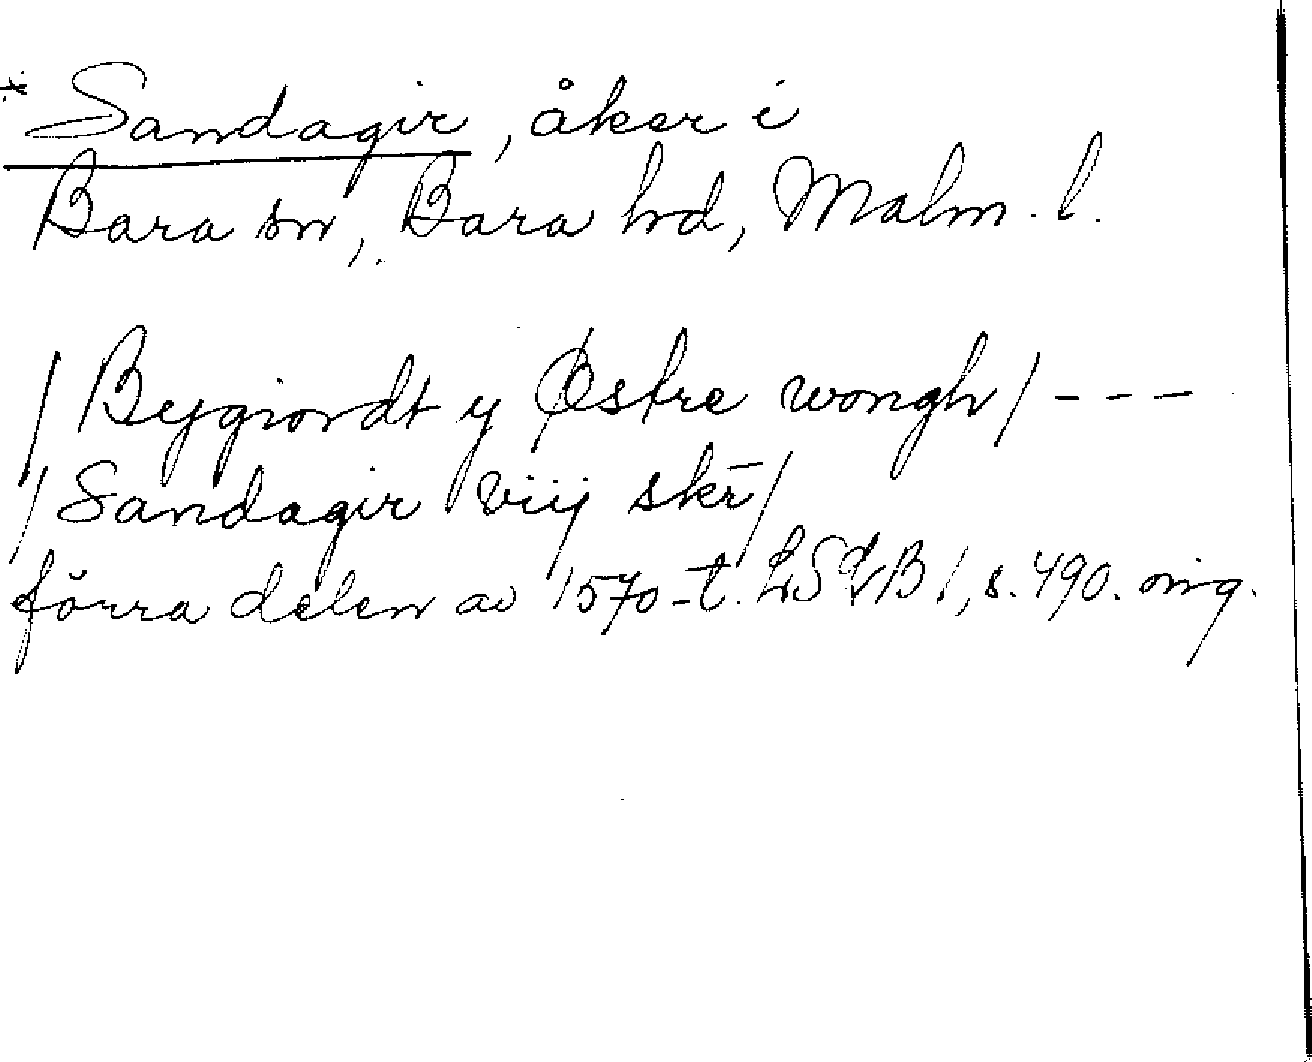 * Sandagir, åker i
Bara sn, Bara hd, Malm. l.
/Bygiordt y Østre wongh/ ---
/Sandagir viij skr̄/
förra delen av 1570-t. LSLB 1, s. 490. orig.